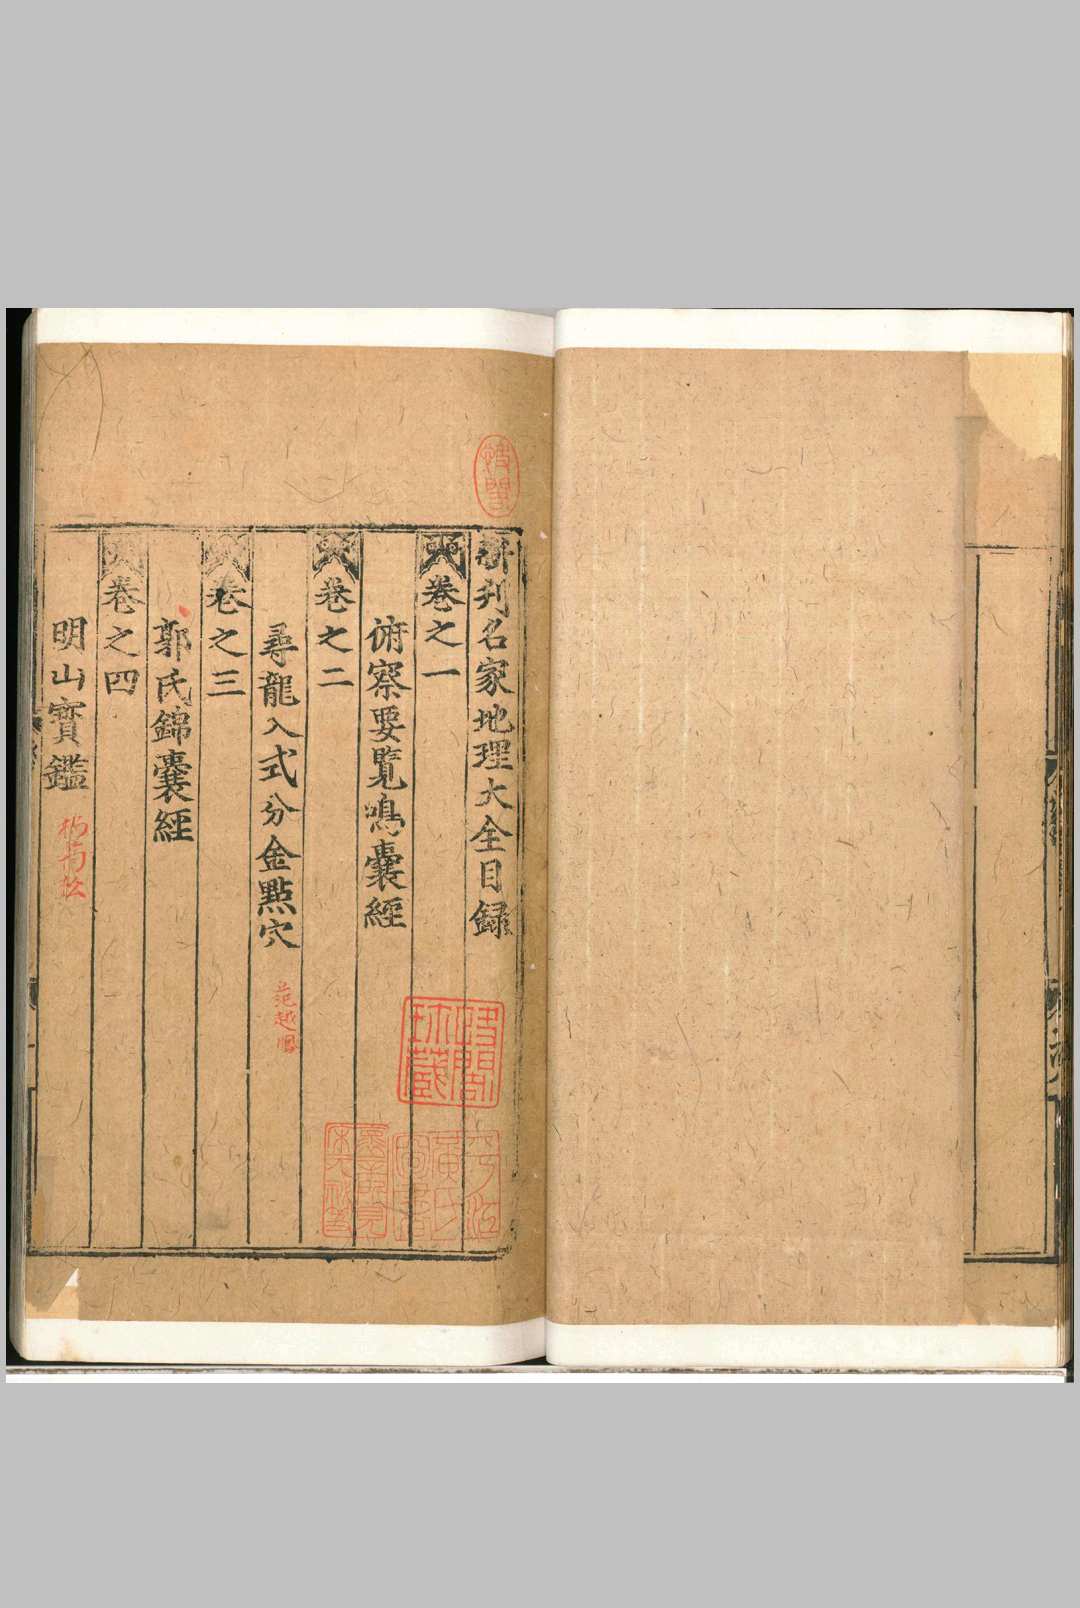 新刋名家地理大全目録
卷之一
俯察要覧鳴囊經
卷之二
尋龍入式分金點穴
范越鳳
卷之三
郭氏錦囊經
卷之四
明山寳鑑
珎藏